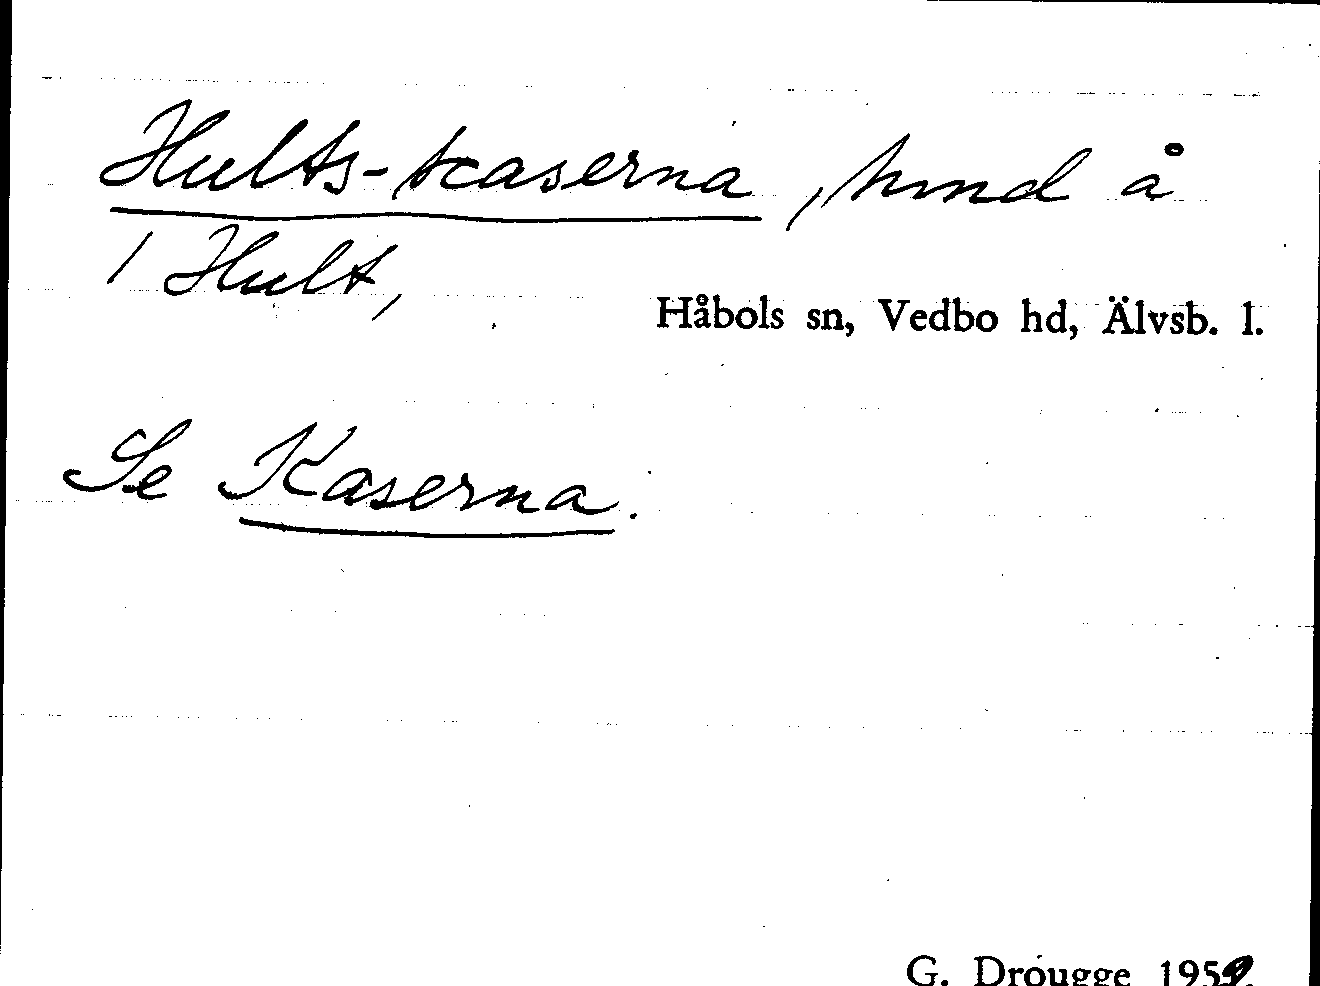 Hults-kaserna, hmd å
1 Hult,
Håbols sn, Vedbo hd, Älvsb. l.
Se Kaserna.
G. Drougge 1959.